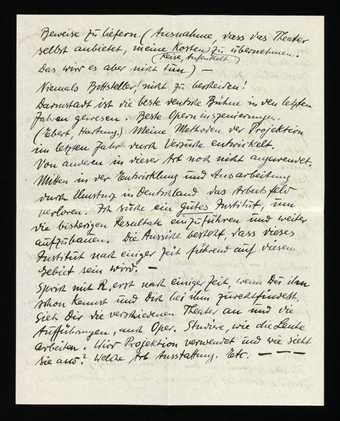 Beweise zu liefern (Ausnahme, dass das Theater
selbst anbietet, meine Kosten zu übernehmen.
(Reise, Aufenthalt)
Das wird es aber nicht tun) —
Niemals Bittsteller, nicht zu bescheiden!
Darmstadt ist die beste deutsche Bühne in den letzten
Jahren gewesen. Beste Operninszenierungen.
(Ebert, Hartung.) Meine Methoden der Projektion
im letzten Jahr durch Versuche entwickelt.
Von anderen in dieser Art noch nicht angewendet.
Mitten in der Entwicklung und Ausarbeitung
durch Umsturz in Deutschland das Arbeitsfeld
verloren. Ich suche ein gutes Institut, um
die bisherigen Resultate einzuführen und weiter
aufzubauen. Die Aussicht besteht dass dieses
Institut nach einiger Zeit führend auf diesem
Gebiet sein wird. —
Sprich mit R. erst nach einiger Zeit, wenn Du ihn
schon kennst und Dich bei ihm zurechtfindest.
Sieh Dir die verschiedenen Theater an und die
Aufführungen, auch Oper. Studiere, wie die Leute
arbeiten. Wird Projektion verwendet und wie sieht
sie aus? Welche Art Ausstattung. Etc. — — —